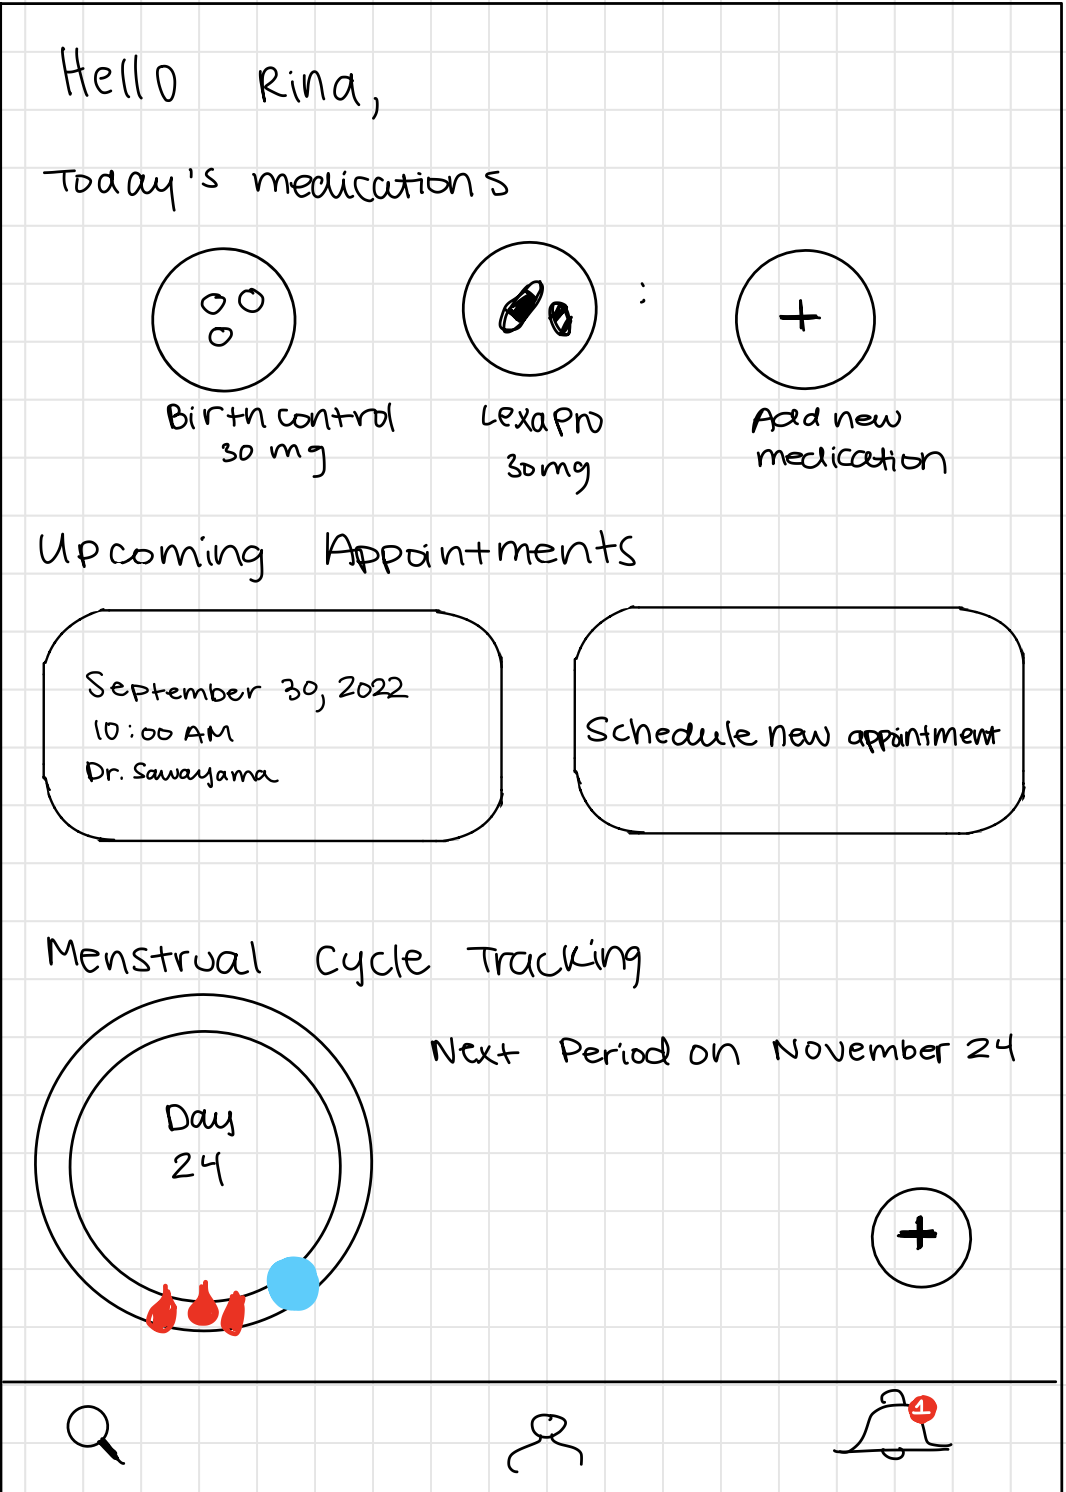 Hello Rina,
Today's medications
Birth control
30 mg
Lexapro
30mg
Add new
medication
Upcoming Appointments
September 30, 2022
10:00 AM
Dr. Sawayama
Schedule new appointment
Menstrual Cycle Tracking
Next Period on November 24
Day
24
1